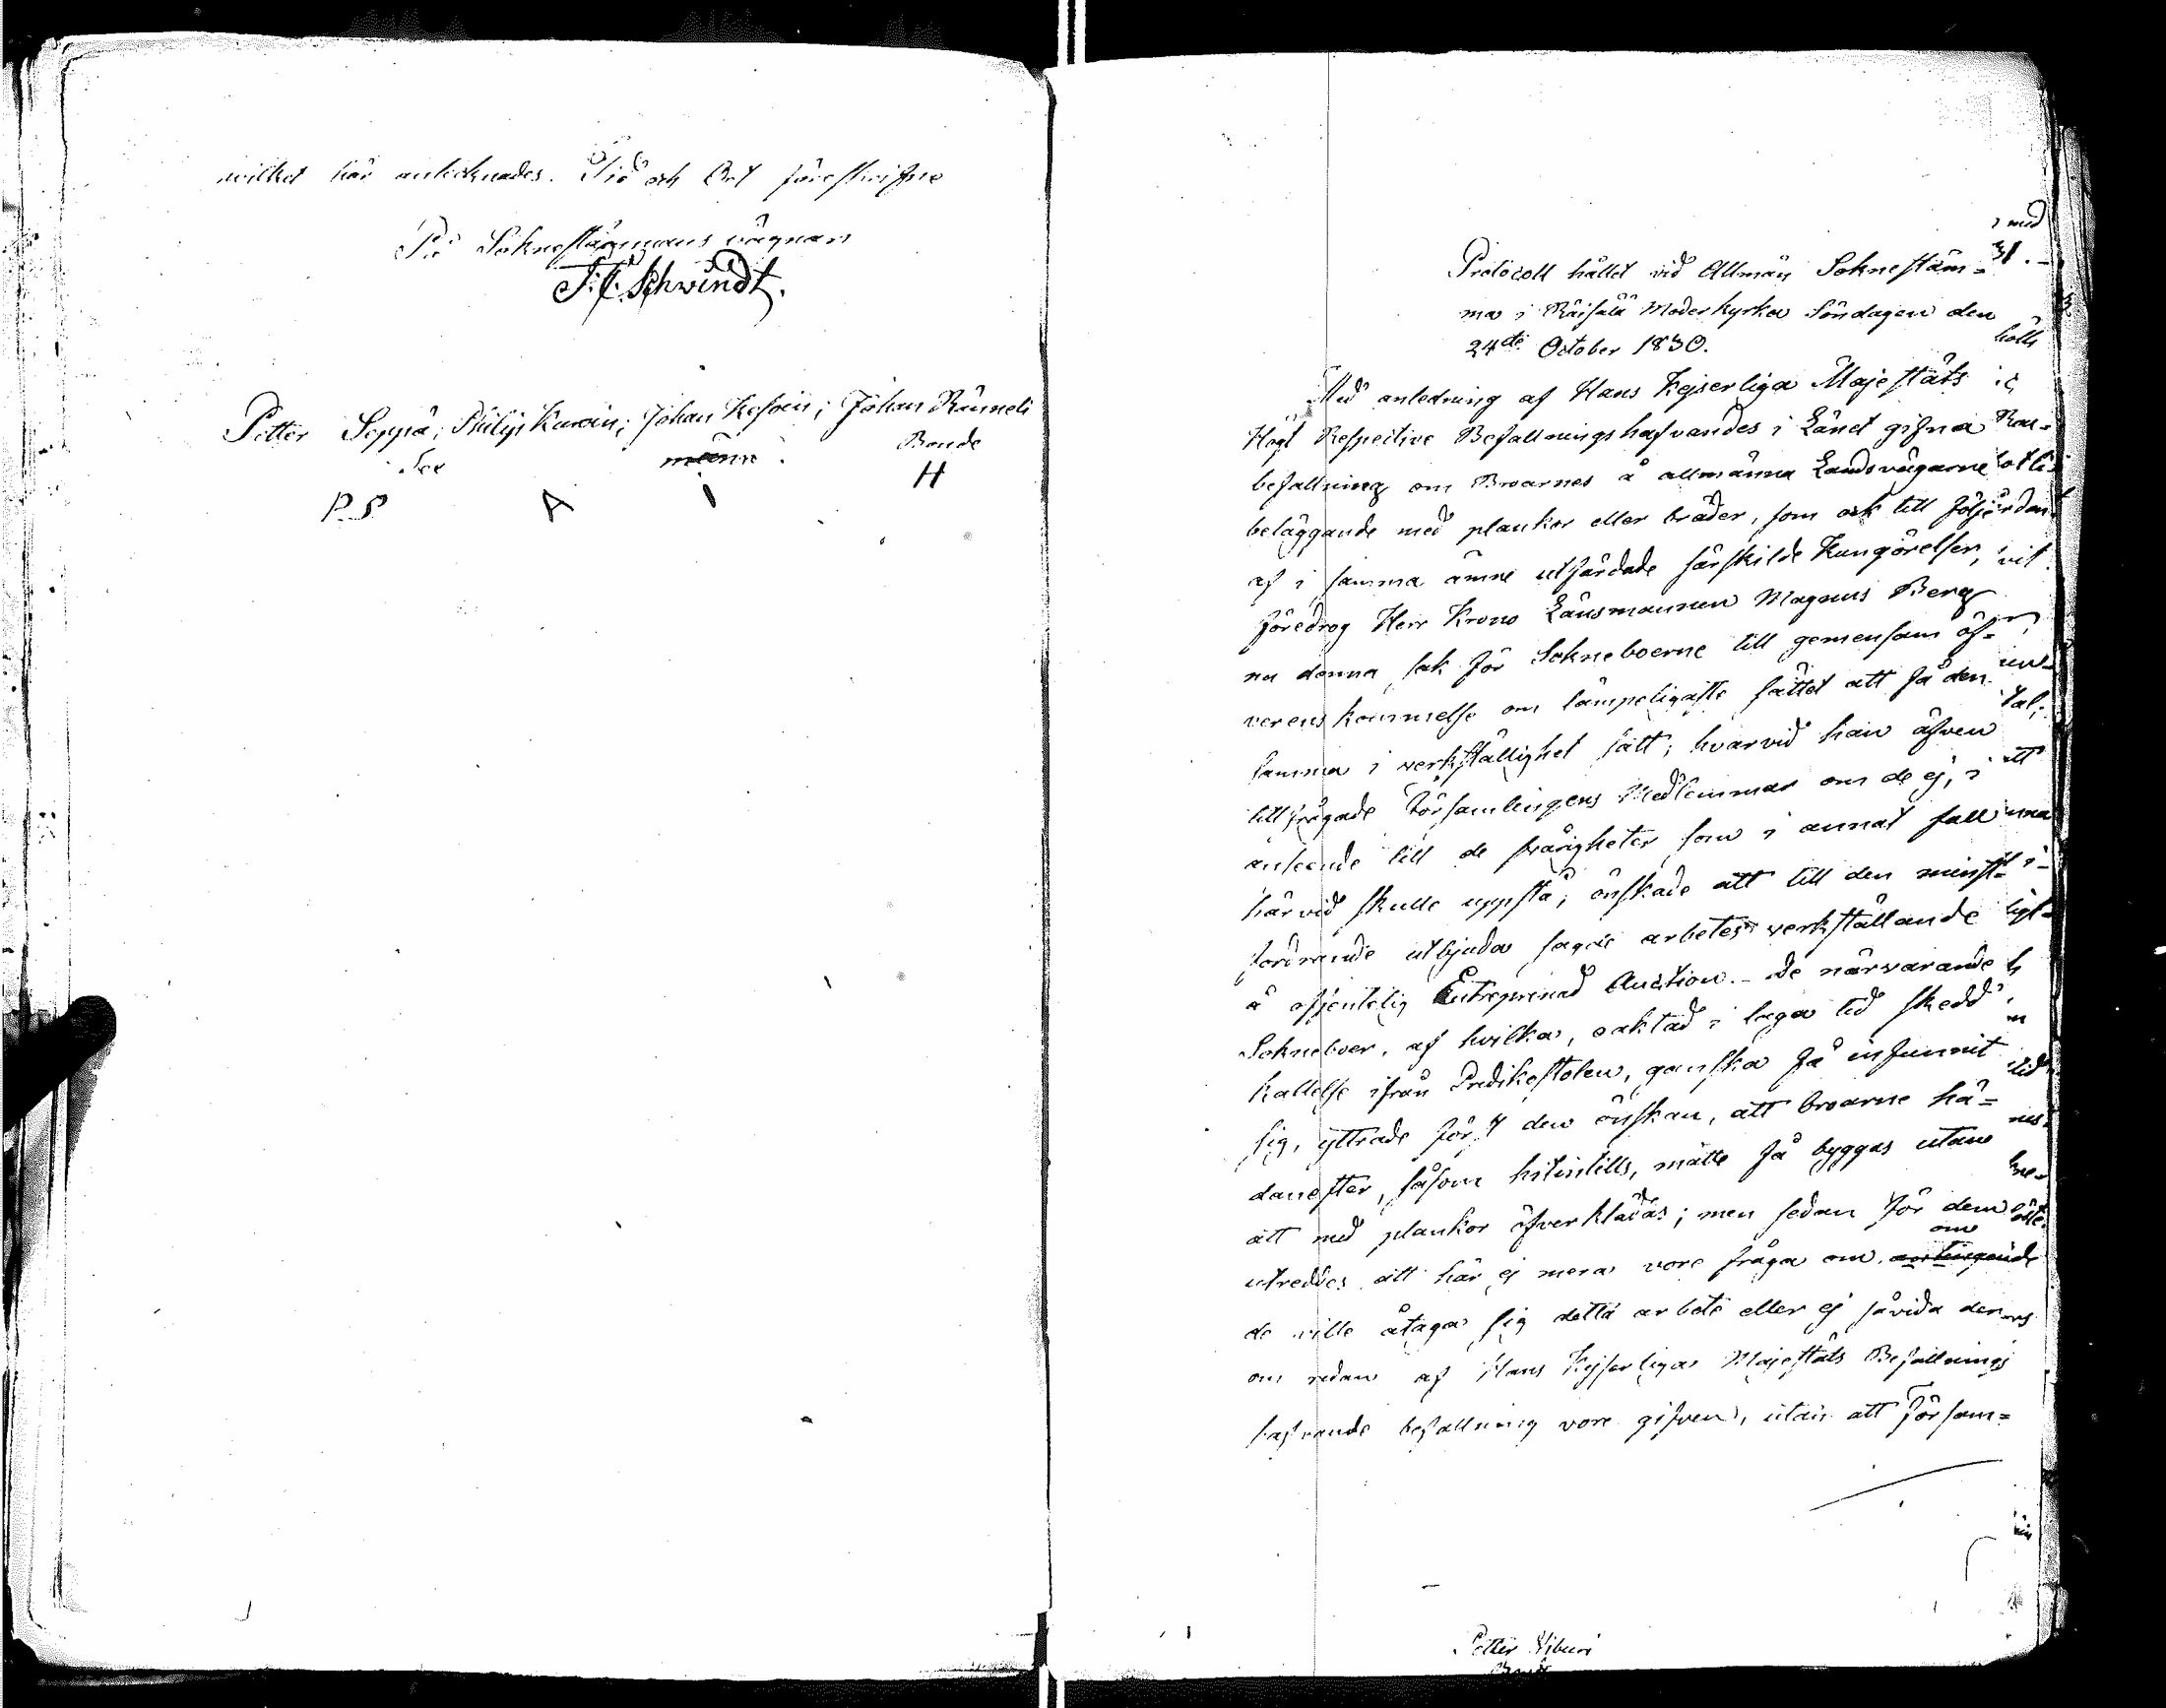 wilket här anteknades. Tid och Ort föreskrifne
På Soknestämmans vägnar
F. J. Schwindt.
Petter Seppä; Philip Kurvin; Johan Kesoin; Johan Rämeli
Bonde
P.S. A i H
Protocoll hållet vid Allmän Soknestäm=
ma i Räisälä Moderkyrka Söndagen den
24de October 1830.
Med anledning af Hans Kejserliga Majestäts
Högt Respective Befallningshafvandes i Länet gifna
befallning om Broarnes å allmänna Landsvägarne
beläggande med plankor eller bräder, som ock till följe
af i samma ämne utfärdade särskilde Kungörelser,
föredrog Herr Krono Länsmannen Magnus Berg
nu denna sak för Sokneboerne till gemensam öf=
verenskommelse om lämpeligaste sättet att få den
samma i verkställighet satt; hvarvid han äfven
tillfrågade Församlingens Medlemmar om de ej, i
anseende till de svårigheter som i annat fall
härvid skulle uppstå, önskade att till den minst=
fordrande utbjuda sagde arbetes verkställande
å offentelig Entreprenad Auction. De närvarande
Sokneboer, af hvilka, oaktad i laga tid skedd
kallelse ifrån Predikostolen, ganska få infunnit
sig, yttrade först den önskan, att broarne hä=
danefter, såsom hitintills, måtte få byggas utan
att med plankor öfverklädas; men sedan för dem
utreddes att här ej mera vore fråga om om
de ville åtaga sig detta arbete eller ej såvida der
om redan af Hans Kejserliga Majestäts Befallnings
hafvande befallning vore gifven, utan att Försam=
Petter